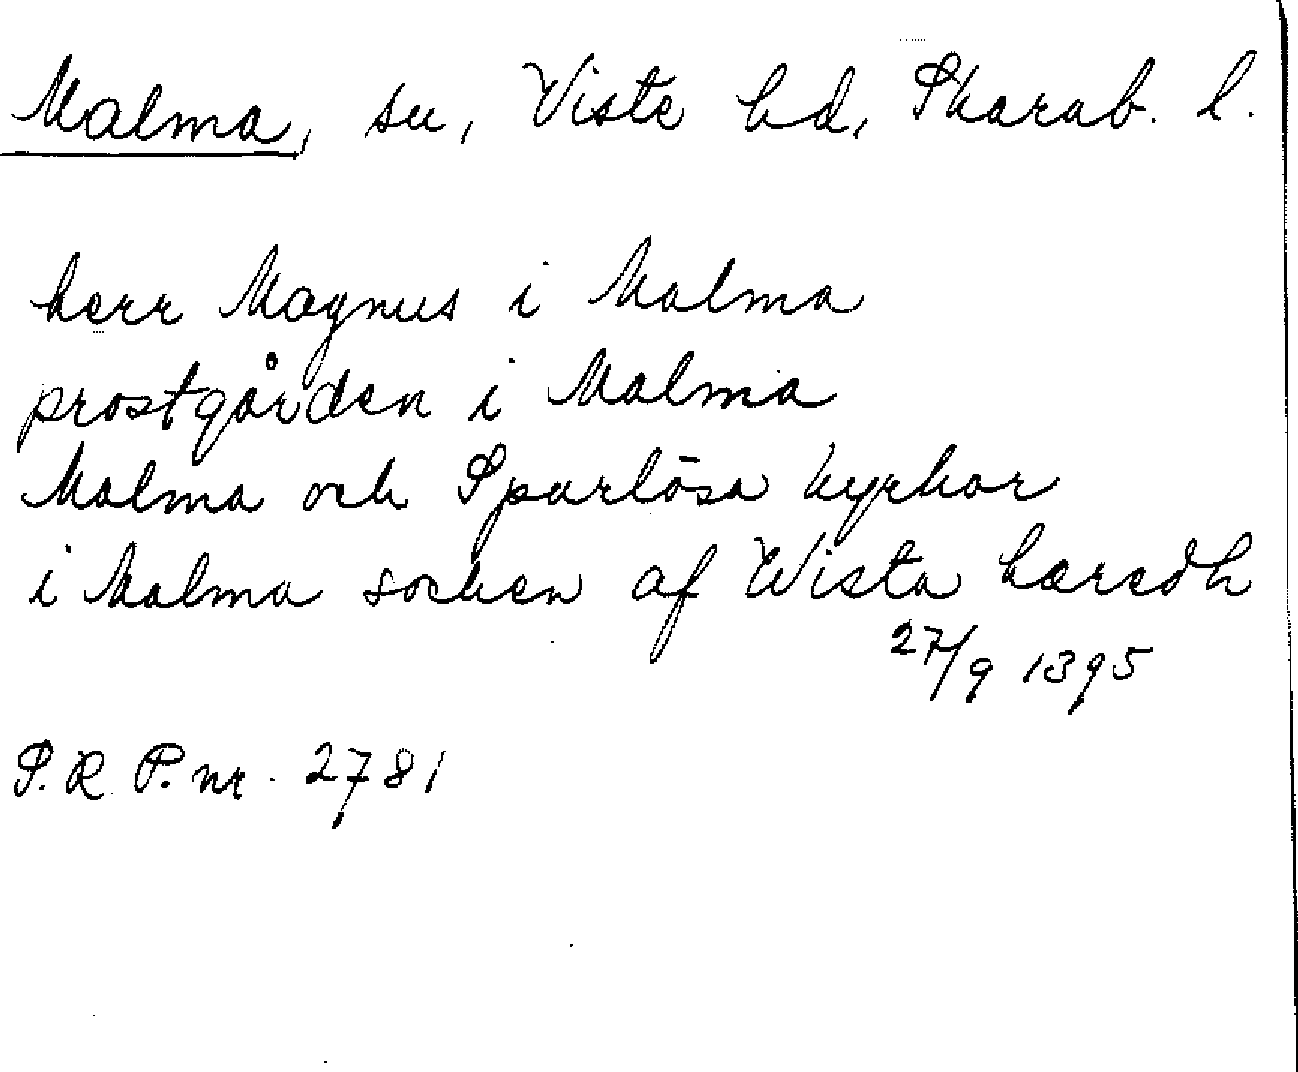 Malma, sn, Viste hd, Skarab. l.
herr Magnus i Malma
prostgården i Malma
Malma och Sparlösa kyrkor
i Malma socken af Wista hæredh
27/9 1395
S.R.P. nr. 2781